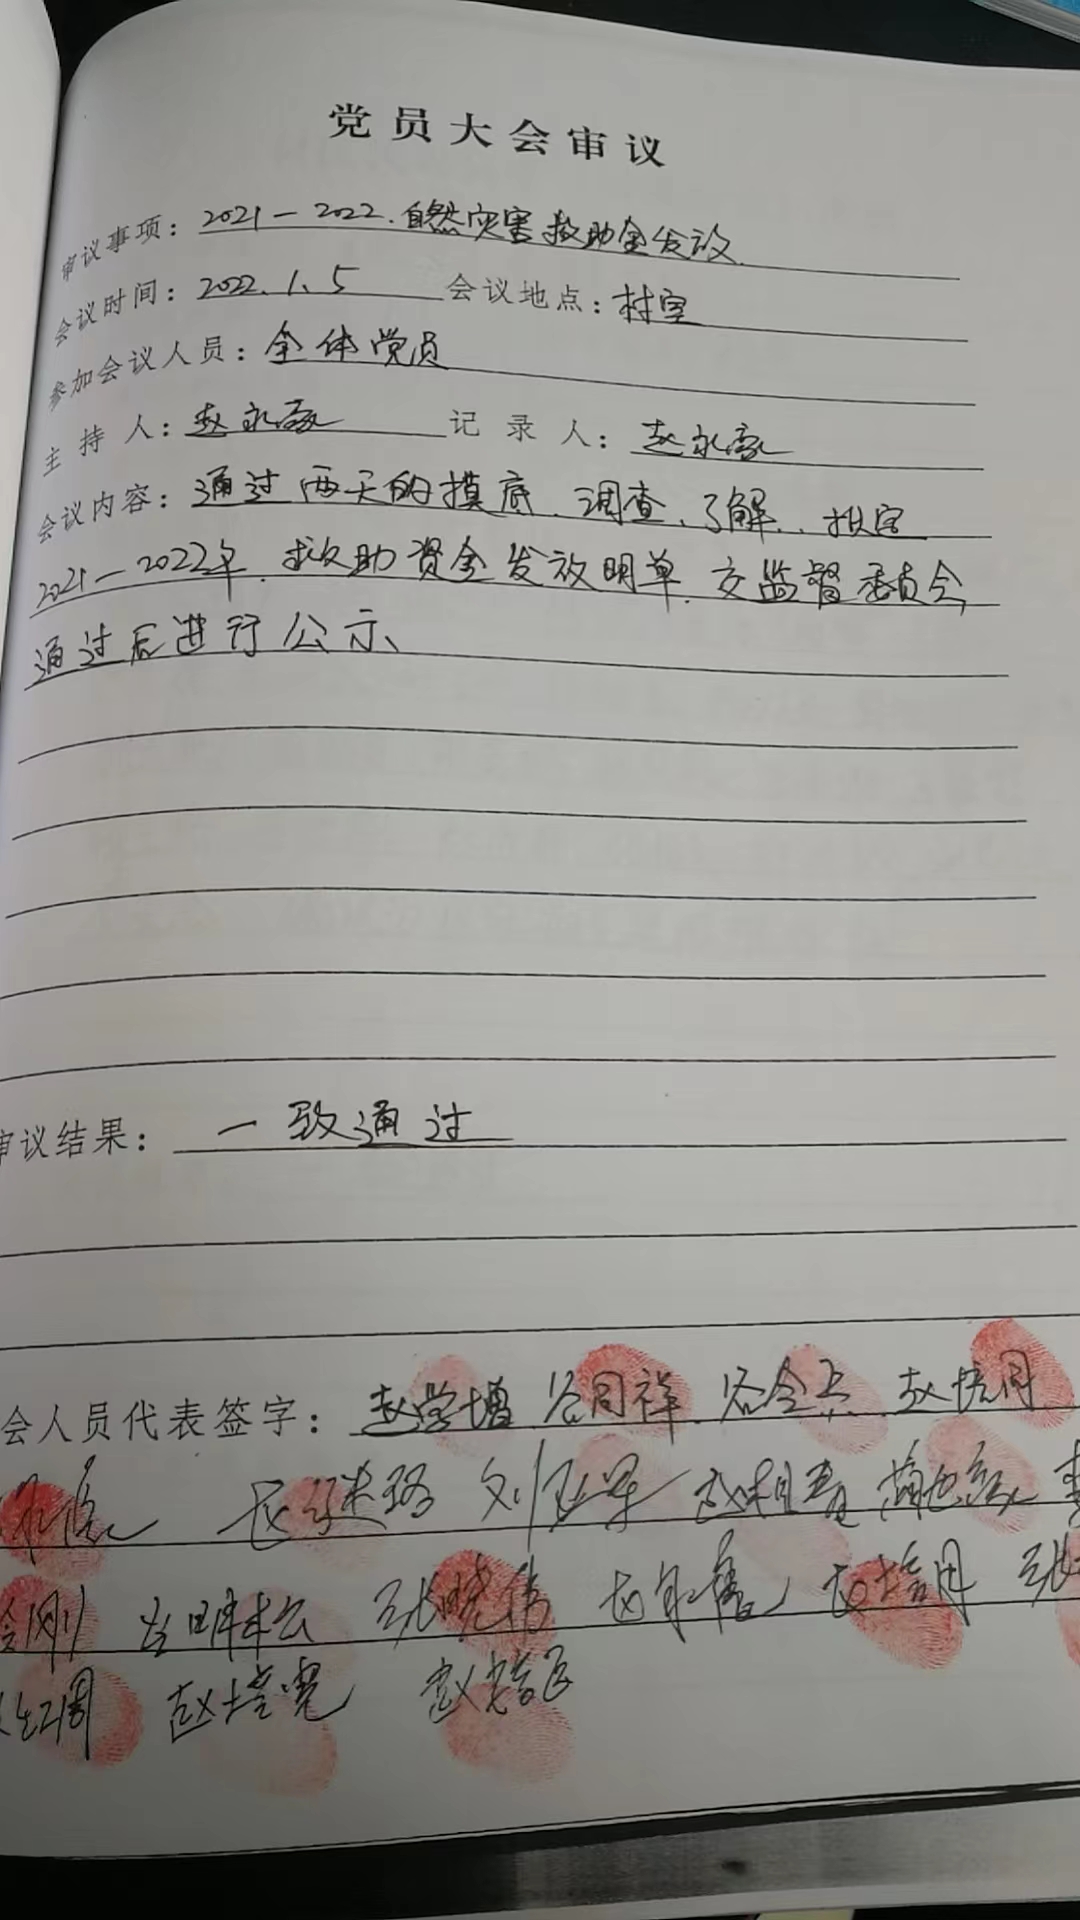 党员大会审议
审议事项：2021—2022.自然灾害救助金发放.
会议时间：2022.1.5 会议地点：村室
参加会议人员：全体党员
主持人：赵永豪 记录人：赵永豪
会议内容：通过两天的摸底、调查、了解、拟定
2021—2022年.救助资金发放明单.交监督委员会
通过后进行公示、
审议结果：一致通过
会人员代表签字：赵学增 谷同祥 谷全兵
赵相春
刚 张晓伟 赵培用
调 赵培